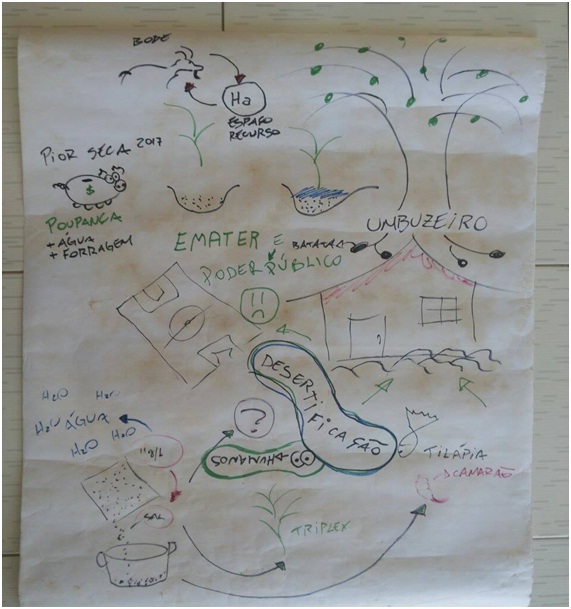 BODE
Ha
ESPAÇO
RECURSO
PIOR SECA 2017
$
POUPANÇA
+ ÁGUA
+ FORRAGEM
UMBUZEIRO
EMATER E
BATATAS
PODER PÚBLICO
DESERTIFICAÇÃO
?
TILÁPIA
CAMARÃO
H₂O
H₂O
H₂O ÁGUA
H₂O
H₂O
SAL
TRIPLEX